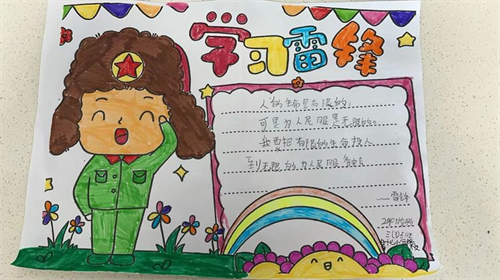 学习雷锋
人的生命是有限的,
可是为人民服务是无限的。
我要把有限的生命投入
到无限的为人民服务
——雷锋